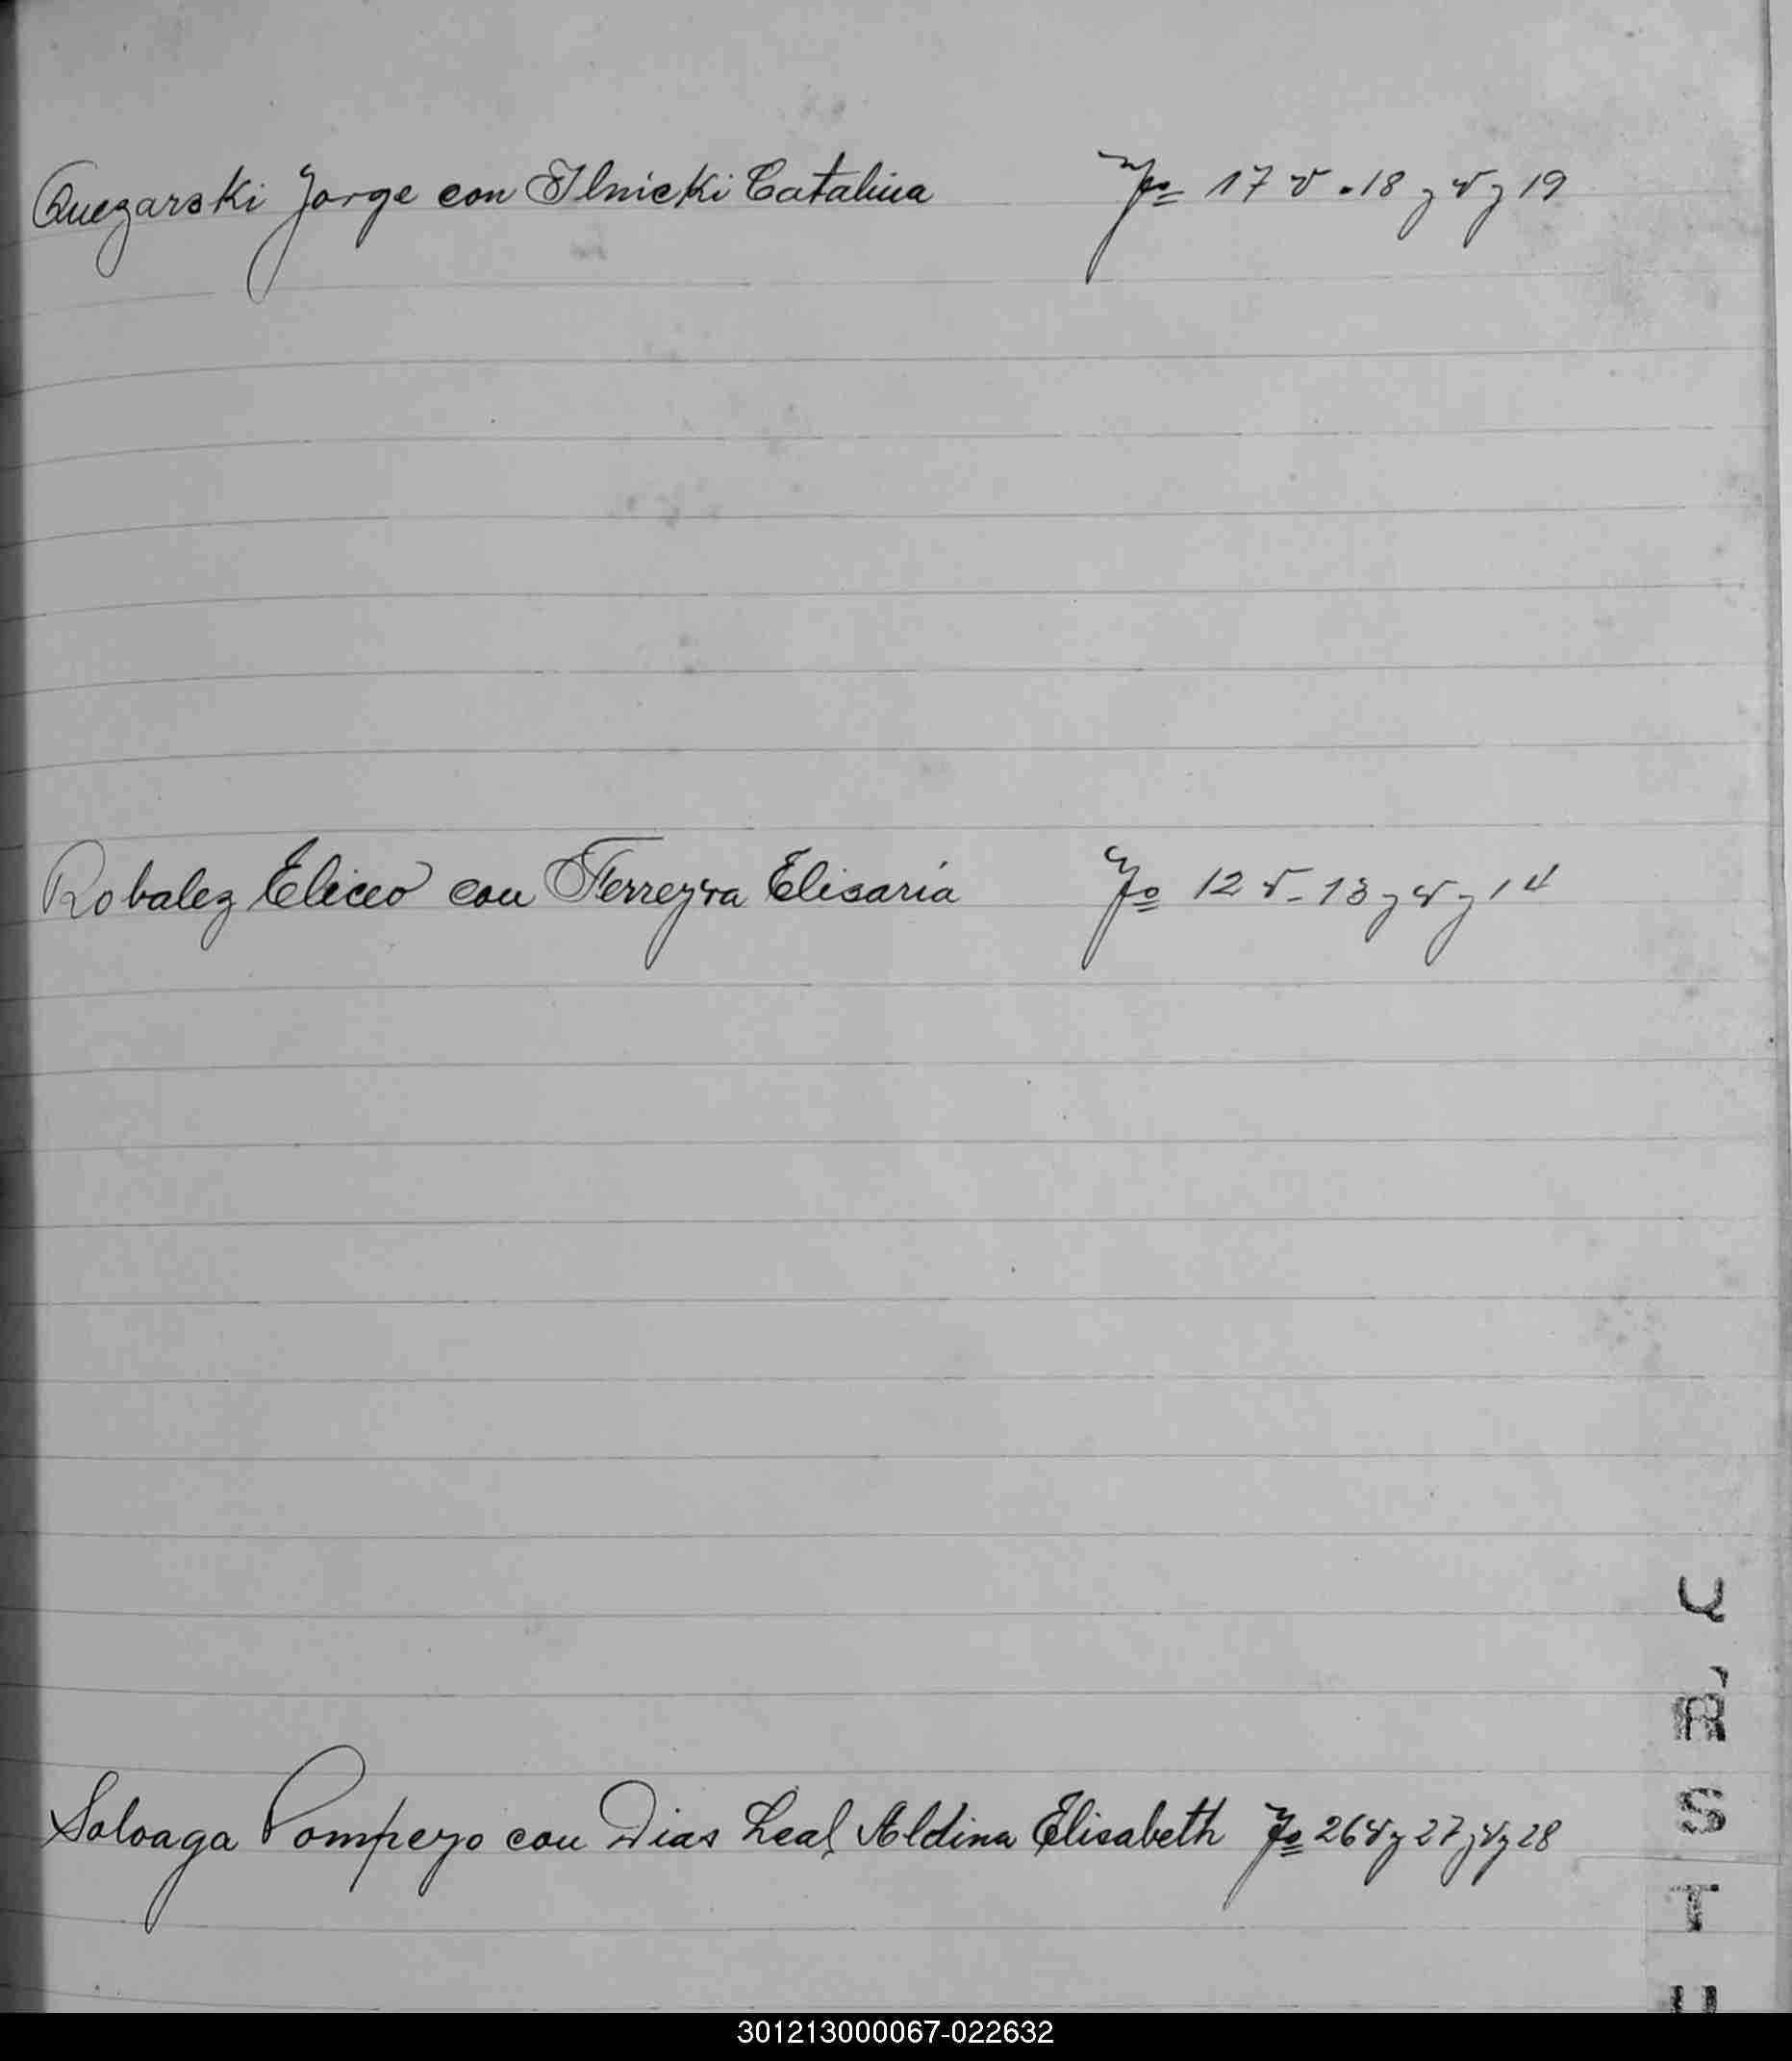 Quezarski Jorge con Ilnicki Catalina Fo 17 v. 18 y v y 19
Robalez Eliceo con Ferreyra Elisaria Fo 12 v - 13 y v y 14
Q
R
Soloaga Pompeyo con Dias Leal Aldina Elisabeth Fo 26 v y 27 y v y 28
S
T
U
301213000067-022632